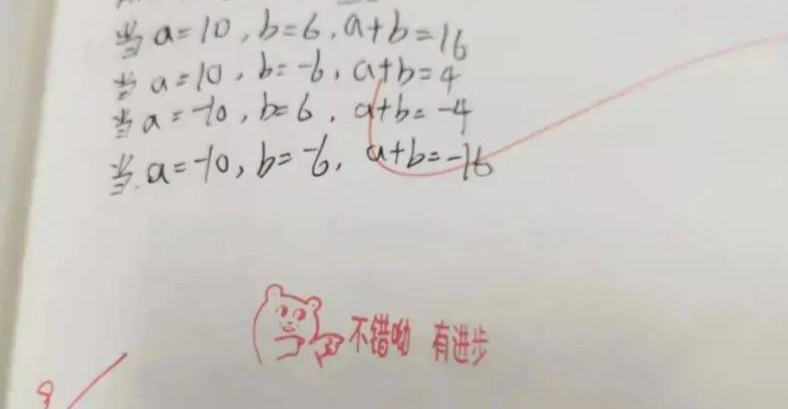 当 a=10，b=6，a+b=16
当 a=10，b=-6，a+b=4
当 a=-10，b=6，a+b=-4
当 a=-10，b=-6，a+b=-16
不错呦 有进步